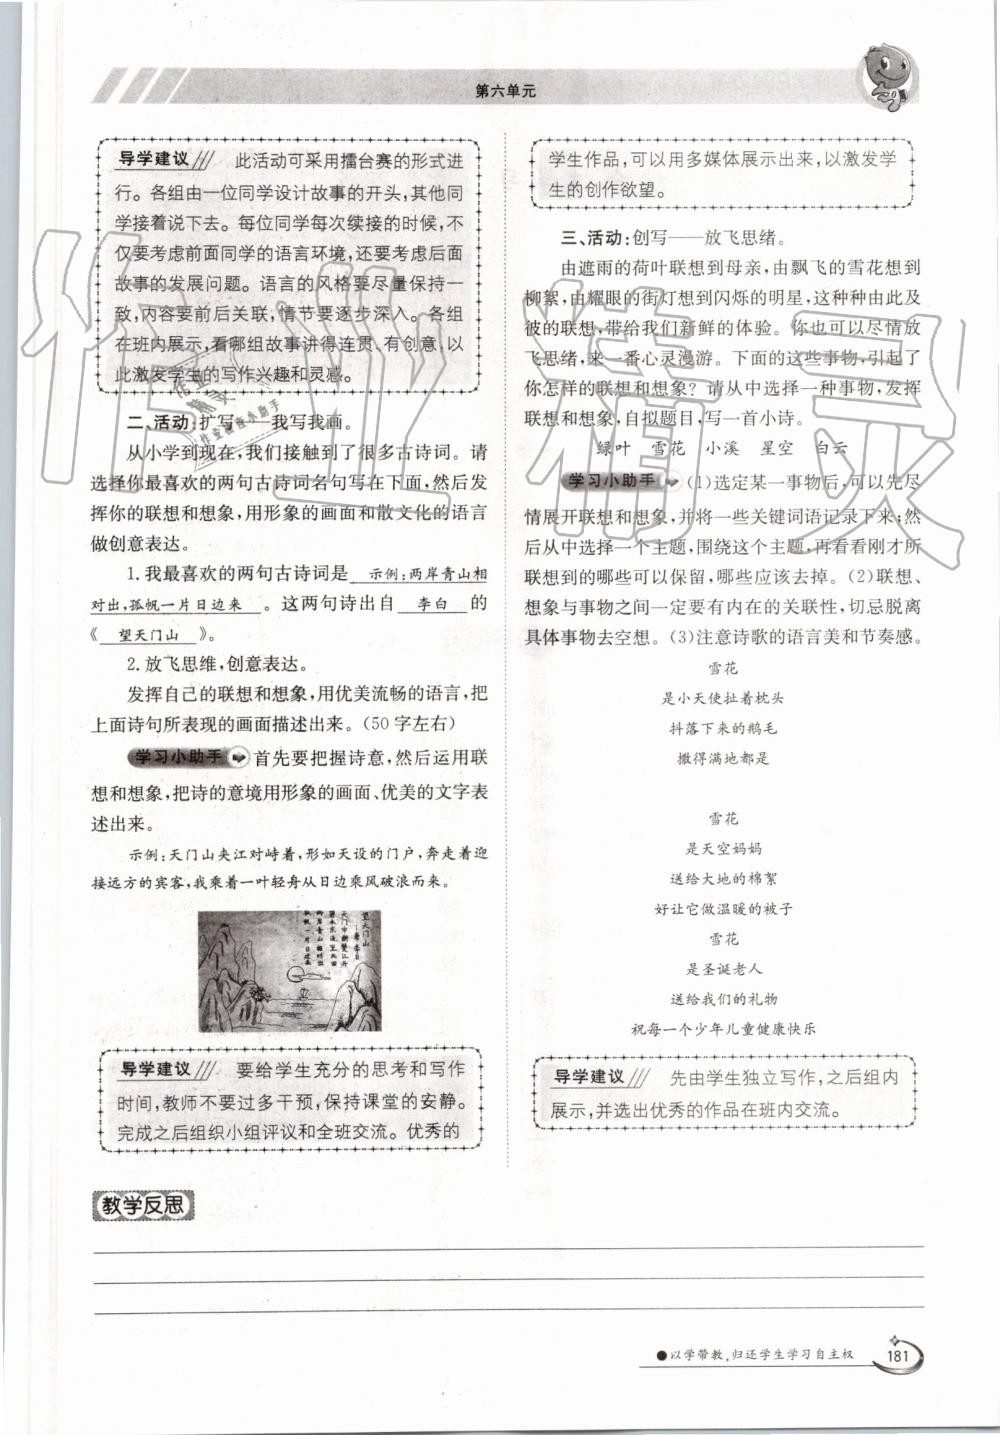 第六单元
导学建议 此活动可采用擂台赛的形式进
行。各组由一位同学设计故事的开头,其他同
学接着说下去。每位同学每次续接的时候,不
仅要考虑前面同学的语言环境,还要考虑后面
故事的发展问题。语言的风格要尽量保持一
致,内容要前后关联,情节要逐步深入。各组
在班内展示,看哪组故事讲得连贯、有创意,以
此激发学生的写作兴趣和灵感。
二、活动:扩写——我写我画。
从小学到现在,我们接触到了很多古诗词。请
选择你最喜欢的两句古诗词名句写在下面,然后发
挥你的联想和想象,用形象的画面和散文化的语言
做创意表达。
1. 我最喜欢的两句古诗词是 示例:两岸青山相
对出,孤帆一片日边来 。这两句诗出自 李白 的
《 望天门山 》。
2. 放飞思维,创意表达。
发挥自己的联想和想象,用优美流畅的语言,把
上面诗句所表现的画面描述出来。(50字左右)
学习小助手 首先要把握诗意,然后运用联
想和想象,把诗的意境用形象的画面、优美的文字表
述出来。
示例:天门山夹江对峙着,形如天设的门户,奔走着迎
接远方的宾客,我乘着一叶轻舟从日边乘风破浪而来。
望天门山
唐 李白
天门中断楚江开
碧水东流至此回
两岸青山相对出
孤帆一片日边来
导学建议 要给学生充分的思考和写作
时间,教师不要过多干预,保持课堂的安静。
完成之后组织小组评议和全班交流。优秀的
学生作品,可以用多媒体展示出来,以激发学
生的创作欲望。
三、活动:创写——放飞思绪。
由遮雨的荷叶联想到母亲,由飘飞的雪花想到
柳絮,由耀眼的街灯想到闪烁的明星,这种种由此及
彼的联想,带给我们新鲜的体验。你也可以尽情放
飞思绪,来一番心灵漫游。下面的这些事物,引起了
你怎样的联想和想象?请从中选择一种事物,发挥
联想和想象,自拟题目,写一首小诗。
绿叶 雪花 小溪 星空 白云
学习小助手 (1)选定某一事物后,可以先尽
情展开联想和想象,并将一些关键词语记录下来;然
后从中选择一个主题,围绕这个主题,再看看刚才所
联想到的哪些可以保留,哪些应该去掉。(2)联想、
想象与事物之间一定要有内在的关联性,切忌脱离
具体事物去空想。(3)注意诗歌的语言美和节奏感。
雪花
是小天使扯着枕头
抖落下来的鹅毛
撒得满地都是
雪花
是天空妈妈
送给大地的棉絮
好让它做温暖的被子
雪花
是圣诞老人
送给我们的礼物
祝每一个少年儿童健康快乐
导学建议 先由学生独立写作,之后组内
展示,并选出优秀的作品在班内交流。
教学反思
●以学带教,归还学生学习自主权
181
作业精灵